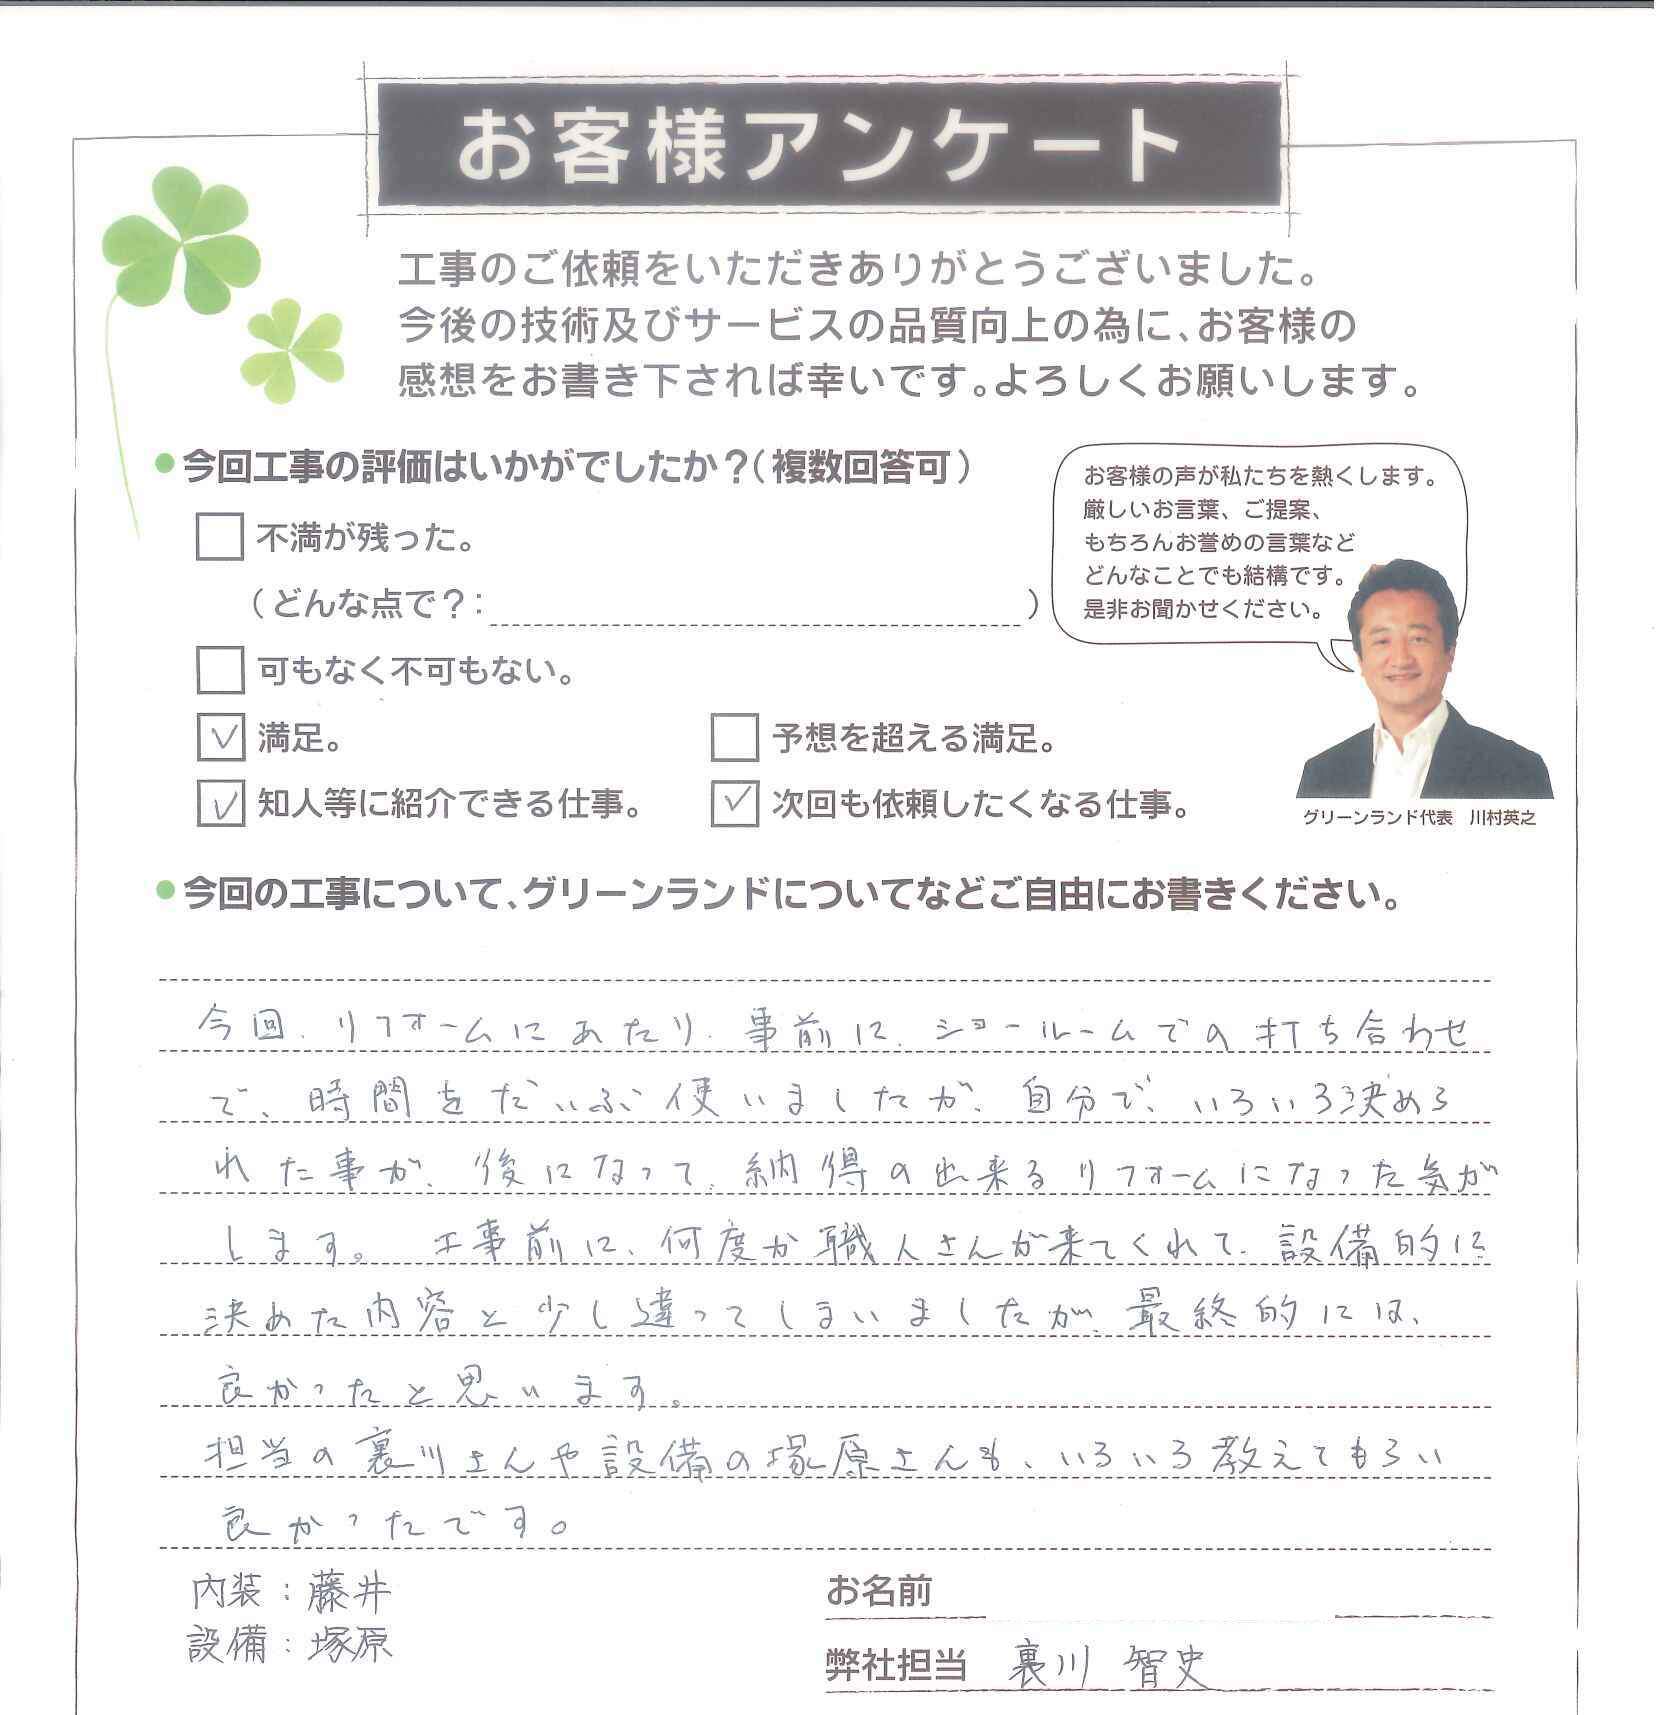 お客様アンケート
工事のご依頼をいただきありがとうございました。
今後の技術及びサービスの品質向上の為に、お客様の
感想をお書き下されば幸いです。よろしくお願いします。
●今回工事の評価はいかがでしたか？（複数回答可）
不満が残った。
（どんな点で？：　）
可もなく不可もない。
満足。
予想を超える満足。
知人等に紹介できる仕事。
次回も依頼したくなる仕事。
お客様の声が私たちを熱くします。
厳しいお言葉、ご提案、
もちろんお誉めの言葉など
どんなことでも結構です。
是非お聞かせください。
グリーンランド代表　川村英之
●今回の工事について、グリーンランドについてなどご自由にお書きください。
今回、リフォームにあたり、事前に、ショールームでの打ち合わせ
で、時間をだいぶ使いましたが、自分で、いろいろ決めら
れた事が、後になって、納得の出来るリフォームになった気が
します。　工事前に、何度か職人さんが来てくれて、設備的に
決めた内容と少し違ってしまいましたが、最終的には、
良かったと思います。
担当の裏川さんや設備の塚原さんも、いろいろ教えてもらい
良かったです。
内装：藤井
設備：塚原
お名前
弊社担当　裏川　智史